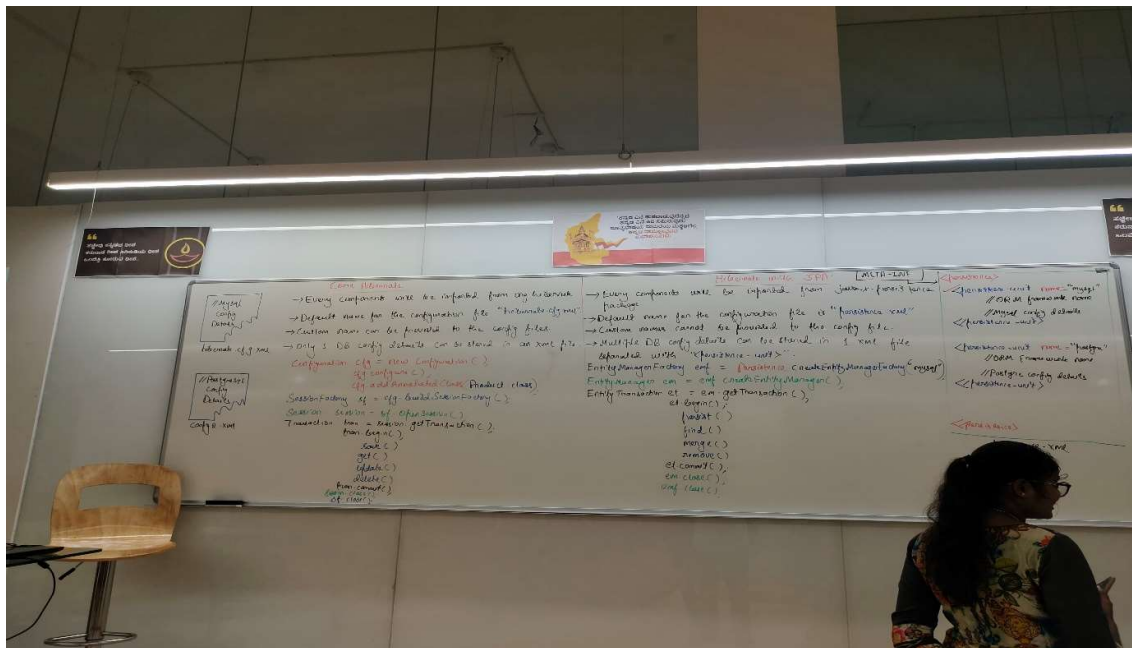 Core Hibernate
//Mysql
Config
Details
hibernate.cfg.xml
//Postgres
Config
Details
Config.xml
→ Every components will be imported from org.hibernate
package
→ Default name for the configuration file "hibernate.cfg.xml"
→ Custom name can be provided to the config files.
→ Only 1 DB config details can be stored in an xml file
Configuration cfg = new Configuration();
cfg.configure();
cfg.addAnnotatedClass(Product.class);
SessionFactory sf = cfg.buildSessionFactory();
Session session = sf.openSession();
Transaction tran = session.getTransaction();
tran.begin();
save()
get()
update()
delete()
tran.commit();
session.close();
sf.close();
Hibernate with JPA
→ Every components will be imported from
package
→ Default name for the configuration file is "persistence.xml"
→ Custom names cannot be provided to the config file.
→ Multiple DB config details can be stored in 1 xml file
separated with "<persistence-unit>".
EntityManagerFactory emf = Persistence.createEntityManagerFactory("mysql")
EntityManager em = emf.createEntityManager();
EntityTransaction et = em.getTransaction();
et.begin();
persist()
find()
merge()
remove()
et.commit();
em.close();
emf.close();
META-INF
<persistence>
<persistence-unit name="mysql"
//ORM framework name
//Mysql config details
</persistence-unit>
<persistence-unit name="postgre"
//ORM framework name
//Postgre config details
</persistence-unit>
</persistence>